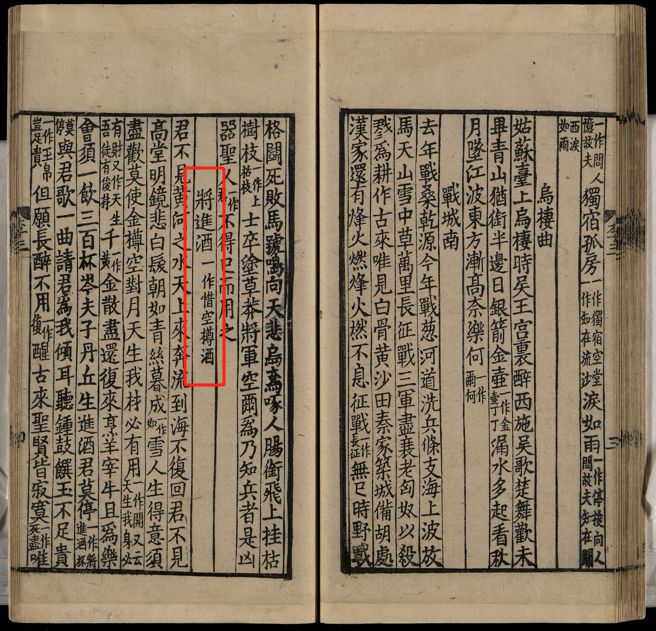 一作問人憶故夫獨宿孤房一作獨宿空堂一作知在流沙淚如雨一作停梭向人問故夫知在關
西淚如雨
烏棲曲
姑蘇臺上烏棲時吳王宮裏醉西施吳歌楚舞歡未
畢青山猶銜半邊日銀箭金壺一作金壺丁丁漏水多起看秋
月墜江波東方漸高奈樂何一作爾何
戰城南
去年戰桑乾源今年戰葱河道洗兵條支海上波放
馬天山雪中草萬里長征戰三軍盡衰老匈奴以殺
戮爲耕作古來唯見白骨黄沙田秦家築城備胡處
漢家還有烽火燃烽火燃不息征戰一作長征無已時野戰
格鬭死敗馬號鳴向天悲烏鳶啄人腸銜飛上挂枯
樹枝一作上枯枝士卒塗草莽將軍空爾爲乃知兵者是凶
器聖人一作君不得已而用之
將進酒一作惜空樽酒
君不見黄河之水天上來奔流到海不復回君不見
高堂明鏡悲白髮朝如青絲暮成一作如雪人生得意須
盡歡莫使金樽空對月天生我材必有用一作開又云天生我身必
有財又作天生吾徒有俊材千一作黄金散盡還復來烹羊宰牛且爲樂
會須一飲三百杯岑夫子丹丘生進酒君莫停一作將進酒杯
莫停與君歌一曲請君爲我傾耳聽鍾鼓饌玉不足貴
一作玉帛豈貴但願長醉不用一作復醒古來聖賢皆寂寞一作死盡唯